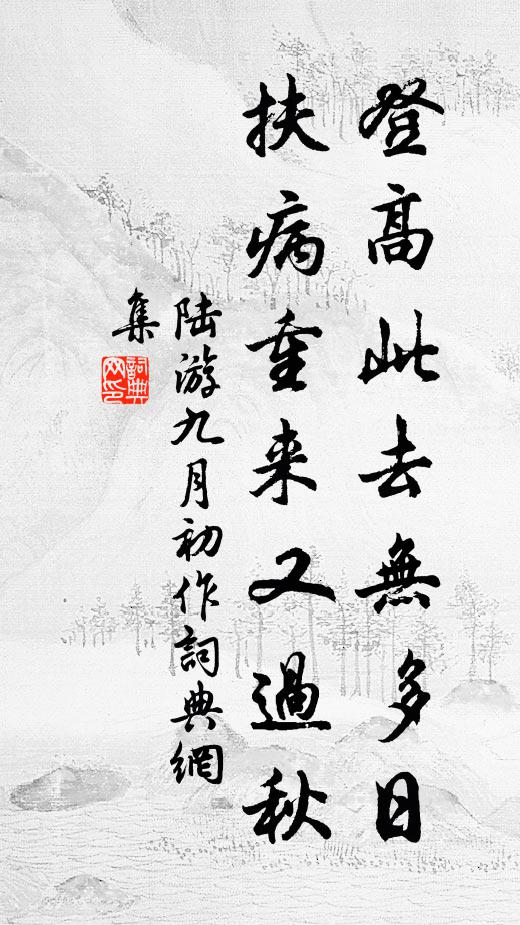 登高此去無多日
扶病重来又過秋
陆游九月初作詞典網
集
詞典网印